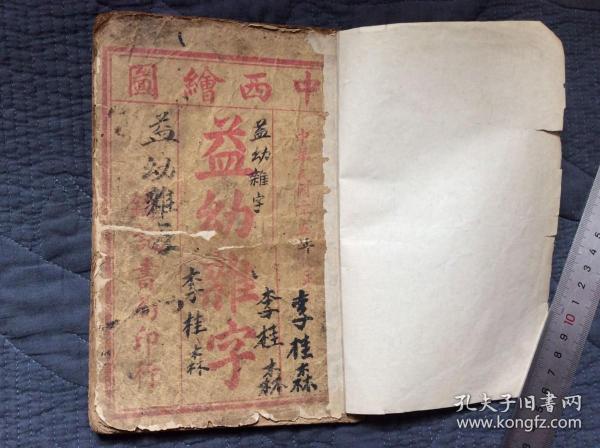 中西繪圖
中華民國
益幼雜字
李桂森
益幼雜字
李桂森
李桂森
益幼雜字
書
印行
孔夫子旧书网
www.kongfz.com
6 7 8 9 10 1 2 3 4 5